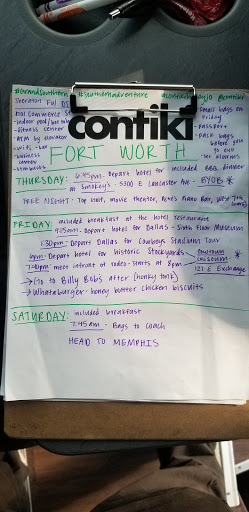 #GrandSouthern #SouthernAdventure @contiki
Sheraton
1701 Commerce St
• indoor pool/hot tub
• fitness center
• ATM by elevator
• wifi
• business center
• Starbucks
• small bags on Friday
• passport
• pack bags before you go out
• set alarms
contiki
FORT WORTH
THURSDAY: 6:45pm - Depart hotel for included BBQ dinner
at Smokey's - 5300 E Lancaster Ave - BYOB *
FREE NIGHT: Top Golf, movie theater, Pete's Piano Bar, West 7th
FRIDAY: included breakfast at the hotel restaurant
Depart hotel for Dallas - Sixth Floor Museum
1:30pm - Depart Dallas for Cowboys Stadium Tour
6pm - Depart hotel for historic Stockyards
7:40pm meet infront of rodeo - starts at 8pm
121 E Exchange
→ Go to Billy Bob's after (honky tonk)
→ Whataburger - honey butter chicken biscuits
SATURDAY: included breakfast
7:45am - Bags to coach
HEAD TO MEMPHIS